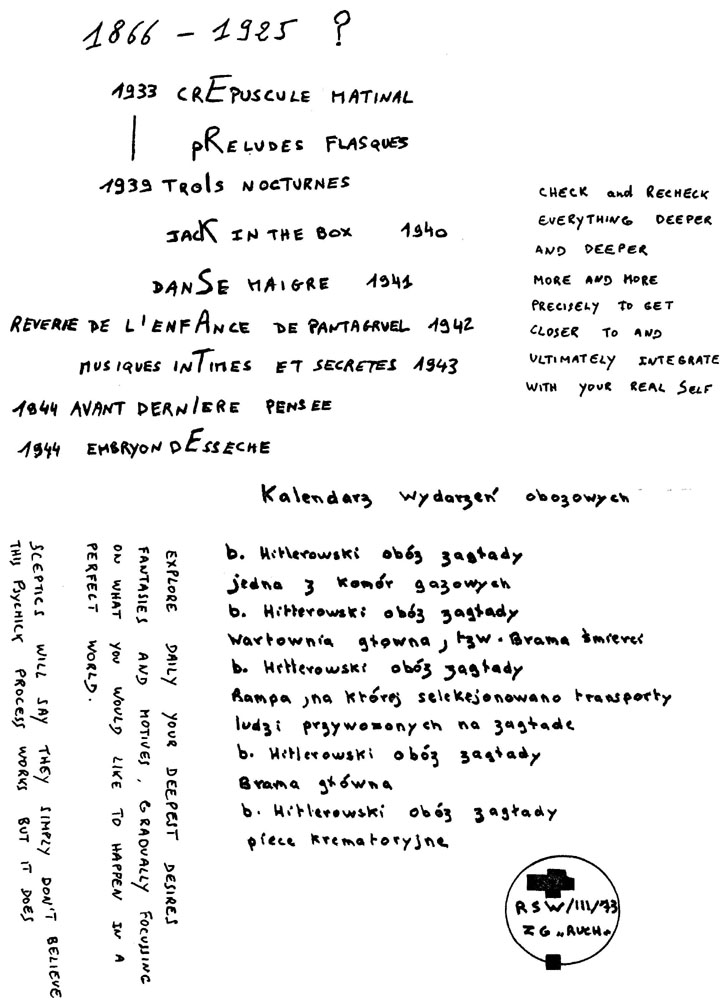 1866 - 1925 ?
1933 CREPUSCULE MATINAL
PRELUDES FLASQUES
1939 TROIS NOCTURNES
JACK IN THE BOX 1940
DANSE MAIGRE 1941
REVERIE DE L'ENFANCE DE PANTAGRUEL 1942
MUSIQUES INTIMES ET SECRETES 1943
1944 AVANT DERNIERE PENSEE
1944 EMBRYON DESSECHE
CHECK and RECHECK
EVERYTHING DEEPER
AND DEEPER
MORE AND MORE
PRECISELY TO GET
CLOSER TO AND
ULTIMATELY INTEGRATE
WITH YOUR REAL SELF
Kalendarz wydarzeń obozowych
b. Hitlerowski obóz zagłady
jedna z komór gazowych
b. Hitlerowski obóz zagłady
Wartownia głowna, tzw. Brama śmierci
b. Hitlerowski obóz zagłady
Rampa, na której selekejonowano transporty
ludzi przywozonych na zagłade
b. Hitlerowski obóz zagłady
Brama główna
b. Hitlerowski obóz zagłady
piece krematoryjne
EXPLORE DAILY YOUR DEEPEST DESIRES
FANTASIES AND MOTIVES, GRADUALLY FOCUSSING
ON WHAT YOU WOULD LIKE TO HAPPEN IN A
PERFECT WORLD.
SCEPTICS WILL SAY THEY SIMPLY DON'T BELIEVE
THIS PSYCHICK PROCESS WORKS BUT IT DOES
RSW/III/73
ZG „RUCH"